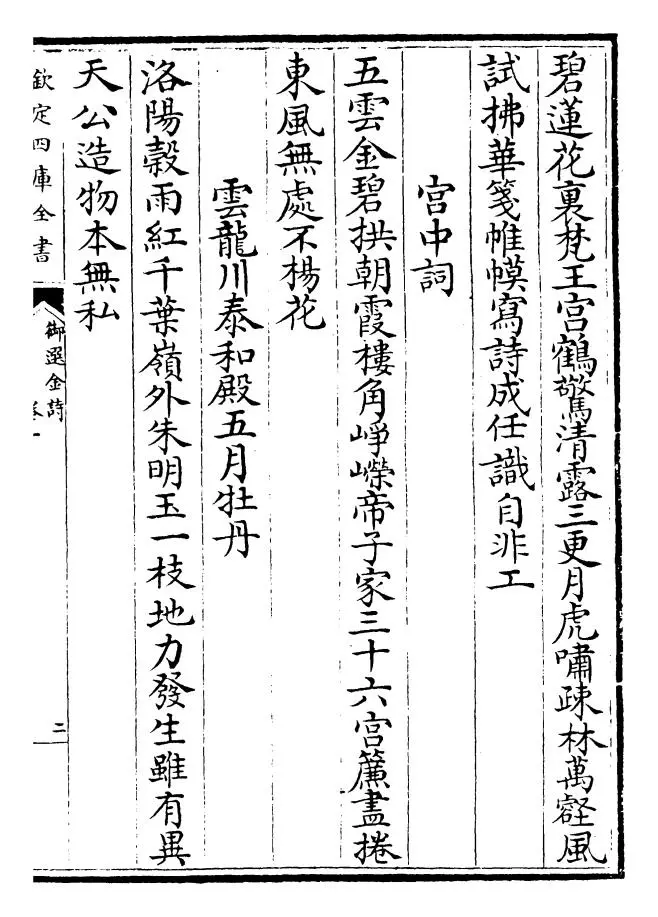 碧蓮花裏梵王宫鶴驚清露三更月虎嘯疎林萬壑風
試拂華箋帷幙寫詩成任識自非工
宫中詞
五雲金碧拱朝霞樓角崢嶸帝子家三十六宫簾盡捲
東風無處不楊花
雲龍川泰和殿五月牡丹
洛陽榖雨紅千葉嶺外朱明玉一枝地力發生雖有異
天公造物本無私
欽定四庫全書
御選金詩
卷一
二